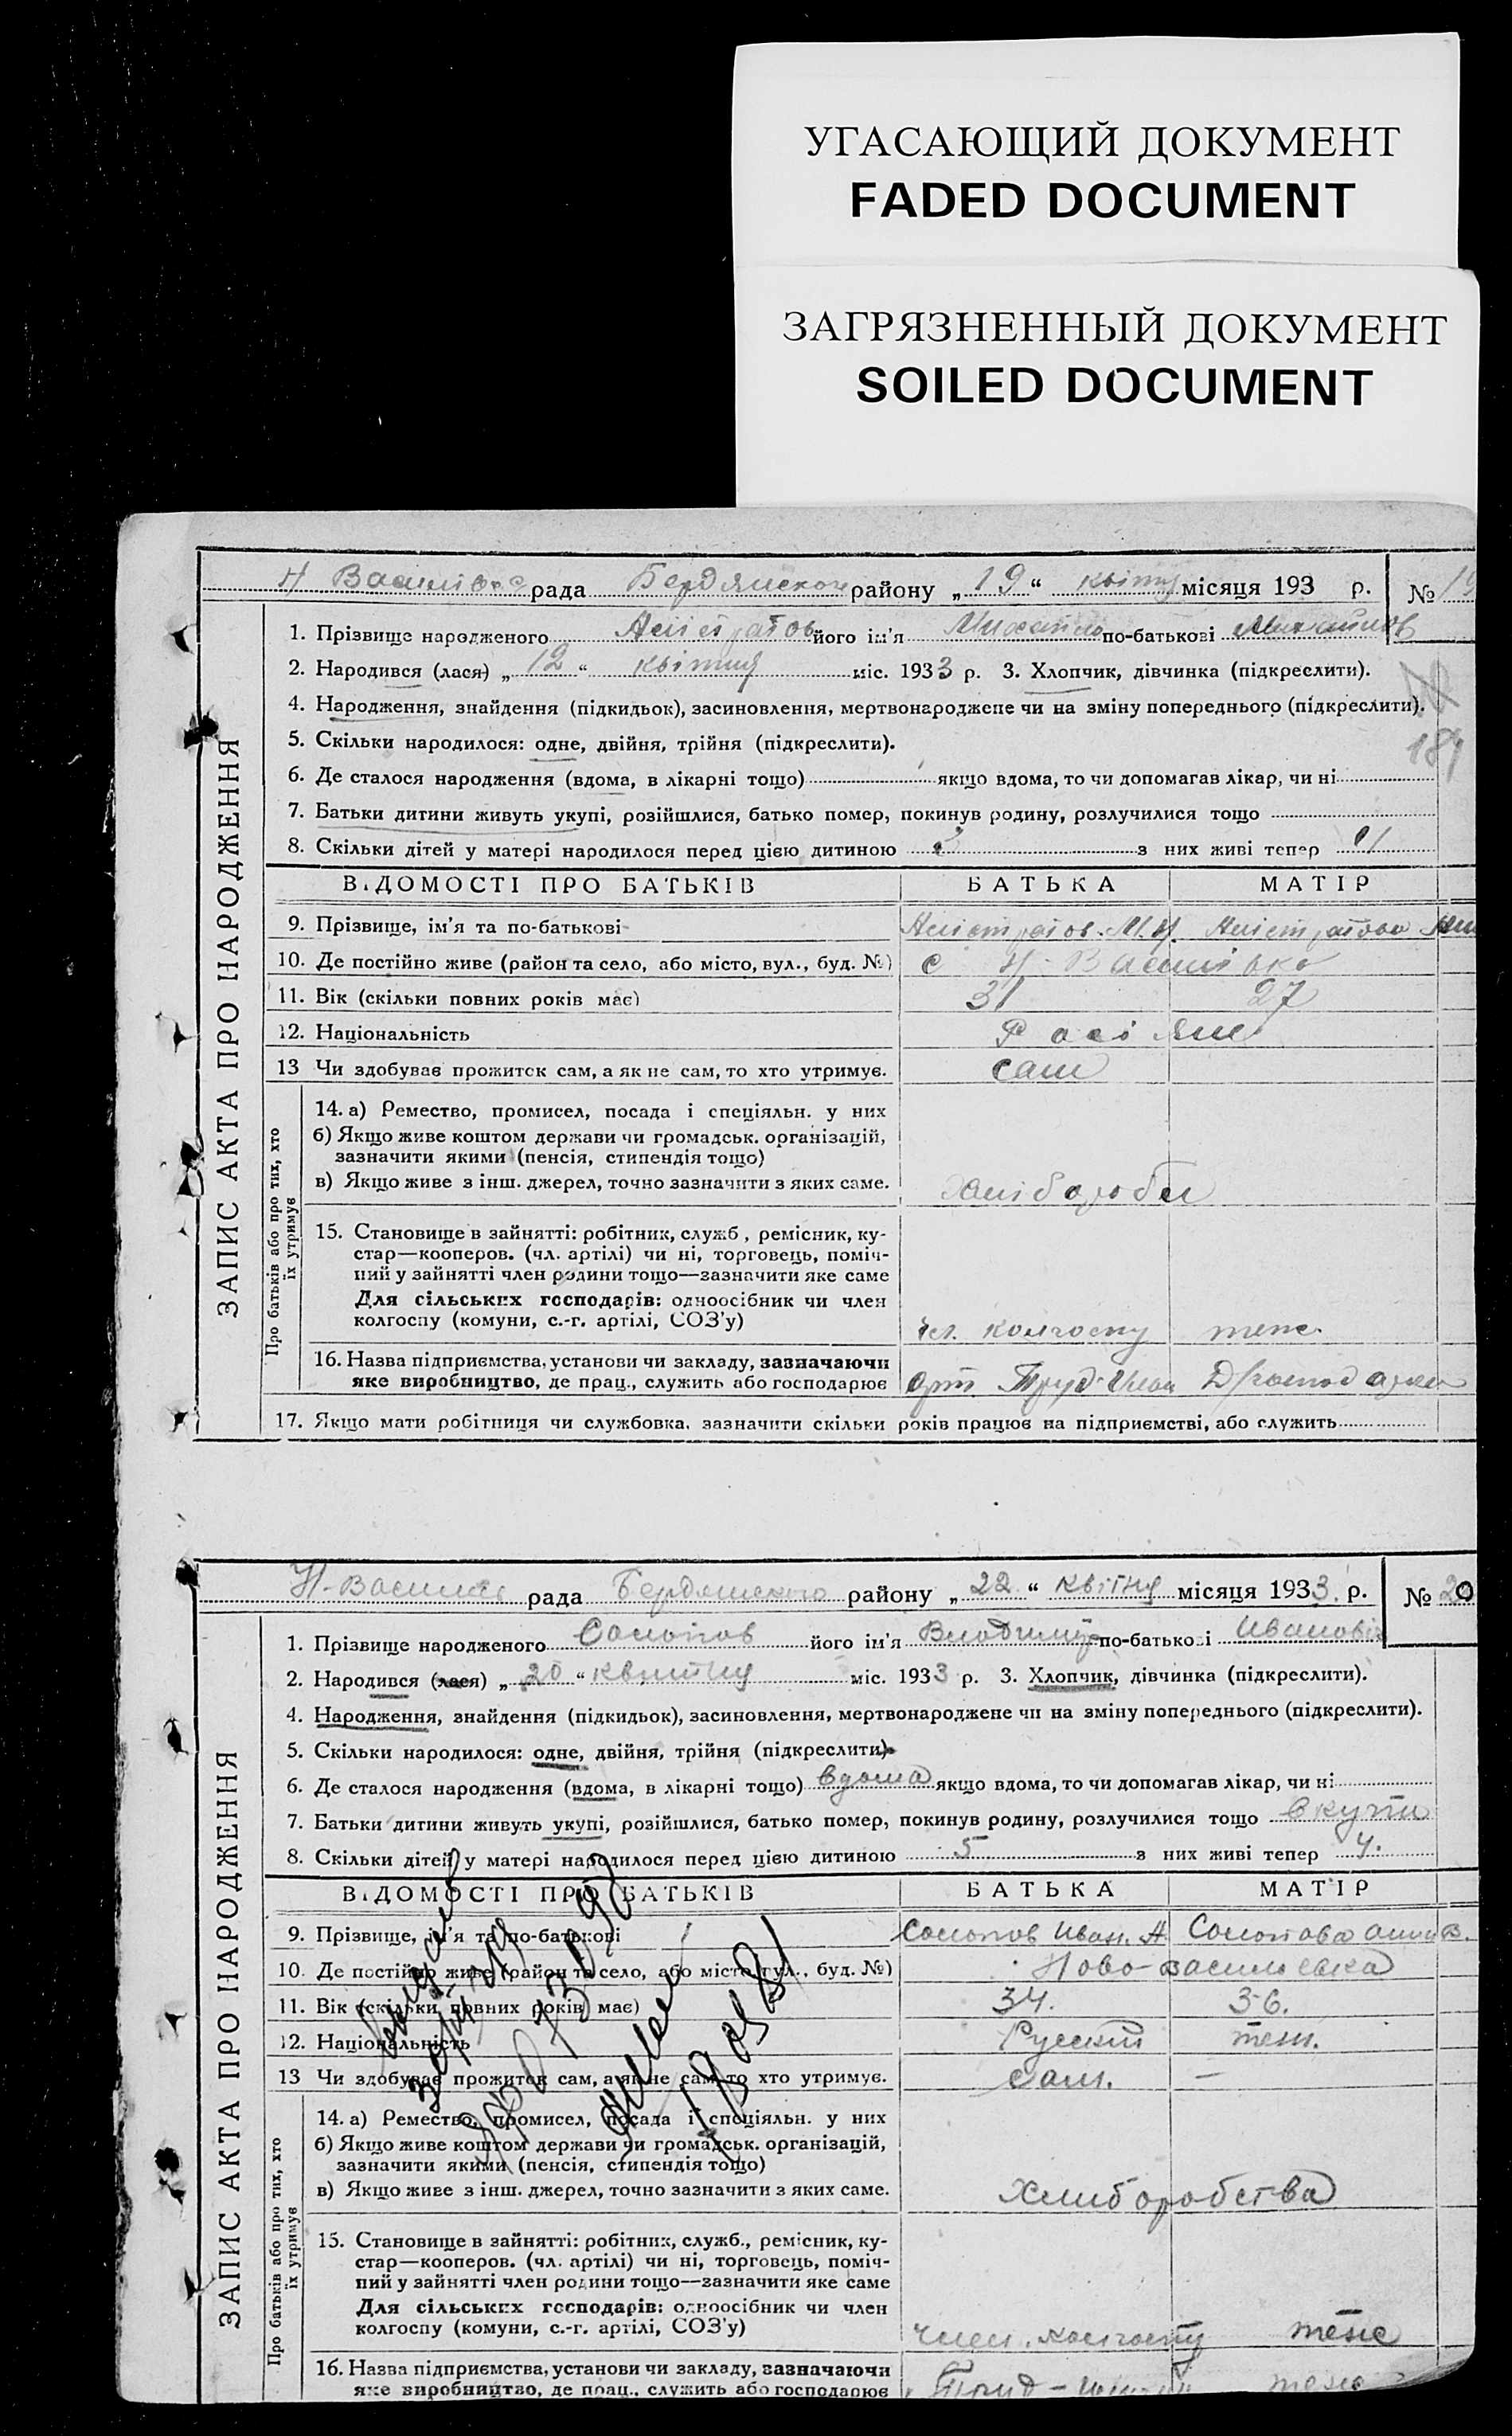 УГАСАЮЩИЙ ДОКУМЕНТ
FADED DOCUMENT
ЗАГРЯЗНЕННЫЙ ДОКУМЕНТ
SOILED DOCUMENT
рада району „ 19 “ місяця 193 р. №
ЗАПИС АКТА ПРО НАРОДЖЕННЯ
1. Прізвище народженого його ім'я Михайло по-батькові
2. Народився (лася) „ 12 “ квітня міс. 1933 р. 3. Хлопчик, дівчинка (підкреслити).
4. Народження, знайдення (підкидьок), засиновлення, мертвонароджене чи на зміну попереднього (підкреслити).
5. Скільки народилося: одне, двійня, трійня (підкреслити).
6. Де сталося народження (вдома, в лікарні тощо) якщо вдома, то чи допомагав лікар, чи ні
7. Батьки дитини живуть укупі, розійшлися, батько помер, покинув родину, розлучилися тощо
8. Скільки дітей у матері народилося перед цією дитиною з них живі тепер
ВІДОМОСТІ ПРО БАТЬКІВ БАТЬКА МАТІР
9. Прізвище, ім'я та по-батькові
10. Де постійно живе (район та село, або місто, вул., буд. №) с Н-Васильівка
11. Вік (скільки повних років має) 31 27
12. Національність Росіяне
13 Чи здобував прожиток сам, а як не сам, то хто утримує. сам
Про батьків або про тих, хто їх утримує
14. а) Ремество, промисел, посада і спеціяльн. у них
б) Якщо живе коштом держави чи громадськ. організацій,
зазначити якими (пенсія, стипендія тощо)
в) Якщо живе з інш. джерел, точно зазначити з яких саме. Хліборобы
15. Становище в зайнятті: робітник, служб, ремісник, ку-
стар—кооперов. (чл. артілі) чи ні, торговець, поміч-
ний у зайнятті член родини тощо—зазначити яке саме
Для сільських господарів: одноосібник чи член
колгоспу (комуни, с.-г. артілі, СОЗ'у) чл. колгоспу теже
16. Назва підприємства, установи чи закладу, зазначаючи
яке виробництво, де прац., служить або господарює
17. Якщо мати робітниця чи службовка, зазначити скільки років працює на підприємстві, або служить
рада Бердянського району „ 22 “ квітну місяця 1933 р. № 20
ЗАПИС АКТА ПРО НАРОДЖЕННЯ
1. Прізвище народженого Солопов його ім'я Володимир по-батькові Иванович
2. Народився (лася) „ 20 “ міс. 1933 р. 3. Хлопчик, дівчинка (підкреслити).
4. Народження, знайдення (підкидьок), засиновлення, мертвонароджене чи на зміну попереднього (підкреслити).
5. Скільки народилося: одне, двійня, трійня (підкреслити)
6. Де сталося народження (вдома, в лікарні тощо) вдома якщо вдома, то чи допомагав лікар, чи ні
7. Батьки дитини живуть укупі, розійшлися, батько помер, покинув родину, розлучилися тощо вкупи
8. Скільки дітей у матері народилося перед цією дитиною 5 з них живі тепер 4.
ВІДОМОСТІ ПРО БАТЬКІВ БАТЬКА МАТІР
9. Прізвище, ім'я та по-батькові Солопов Иван. А. Солопова Анна В.
10. Де постійно живе (район та село, або місто, вул., буд. №) Ново-васильевка
11. Вік (скільки повних років має) 34. 36.
12. Національність Русский теж.
13 Чи здобував прожиток сам, а як не сам, то хто утримує. сам. —
Про батьків або про тих, хто їх утримує
14. а) Ремество, промисел, посада і спеціяльн. у них
б) Якщо живе коштом держави чи громадськ. організацій,
зазначити якими (пенсія, стипендія тощо)
в) Якщо живе з інш. джерел, точно зазначити з яких саме. Хлиборобства
15. Становище в зайнятті: робітник, служб., ремісник, ку-
стар—кооперов. (чл. артілі) чи ні, торговець, поміч-
ний у зайнятті член родини тощо—зазначити яке саме
Для сільських господарів: одноосібник чи член
колгоспу (комуни, с.-г. артілі, СОЗ'у) член. колгоспу теже
16. Назва підприємства, установи чи закладу, зазначаючи
яке виробництво, де прац., служить або господарює